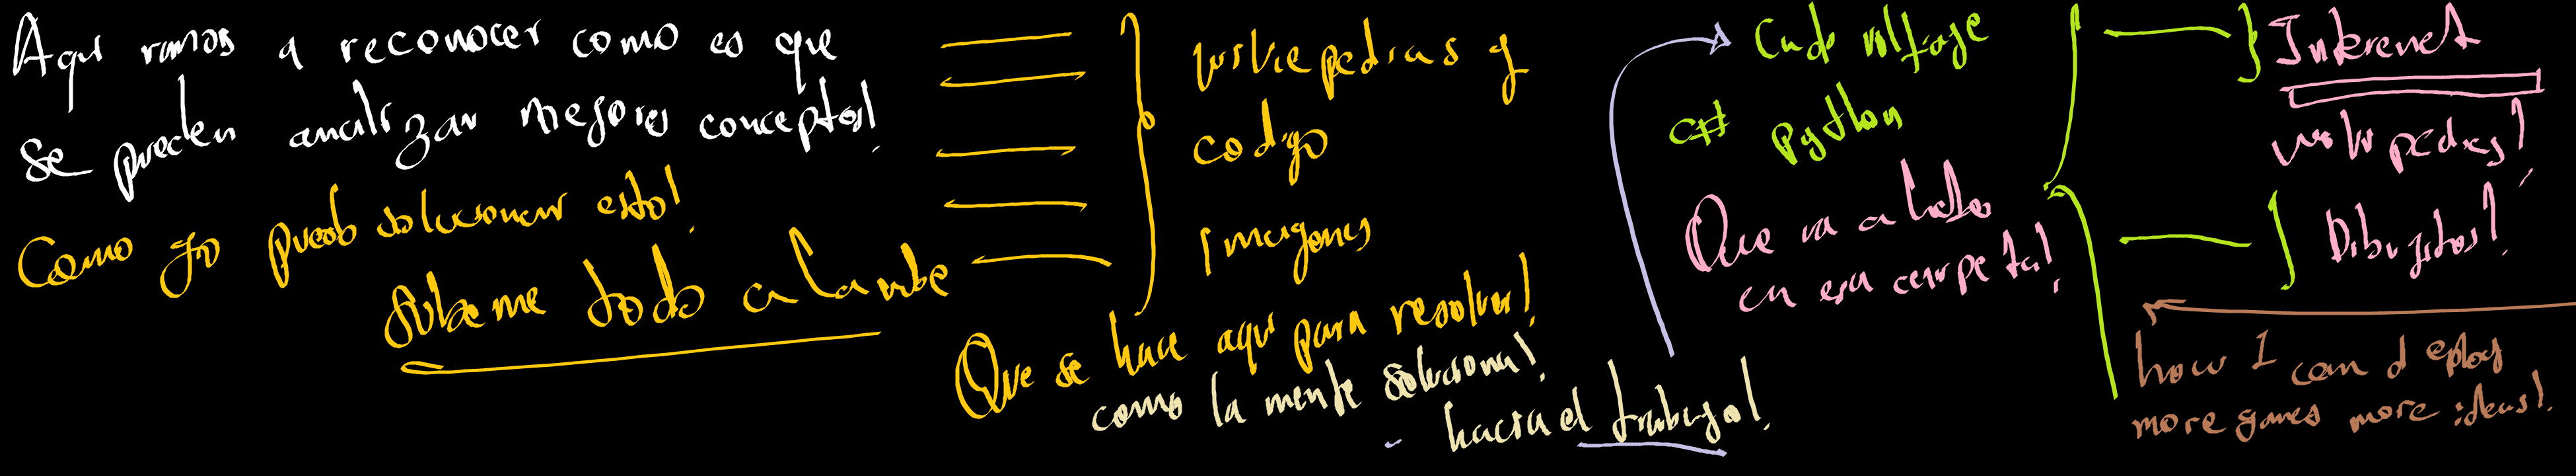 Aqui vamos a reconocer como es que
se pueden analizar mejores conceptos!
Como yo puedo solucionar esto!
Subeme todo a la nube
wikipedias y
codigo
imagenes
Que se hace aqui para resolver!
como la mente soluciona!
- hacia el trabajo!
voltaje
C# Python
Que va a
en esa carpeta!
Internet
wikipedias!
Dibujitos!
how I can deploy
more games more ideas!